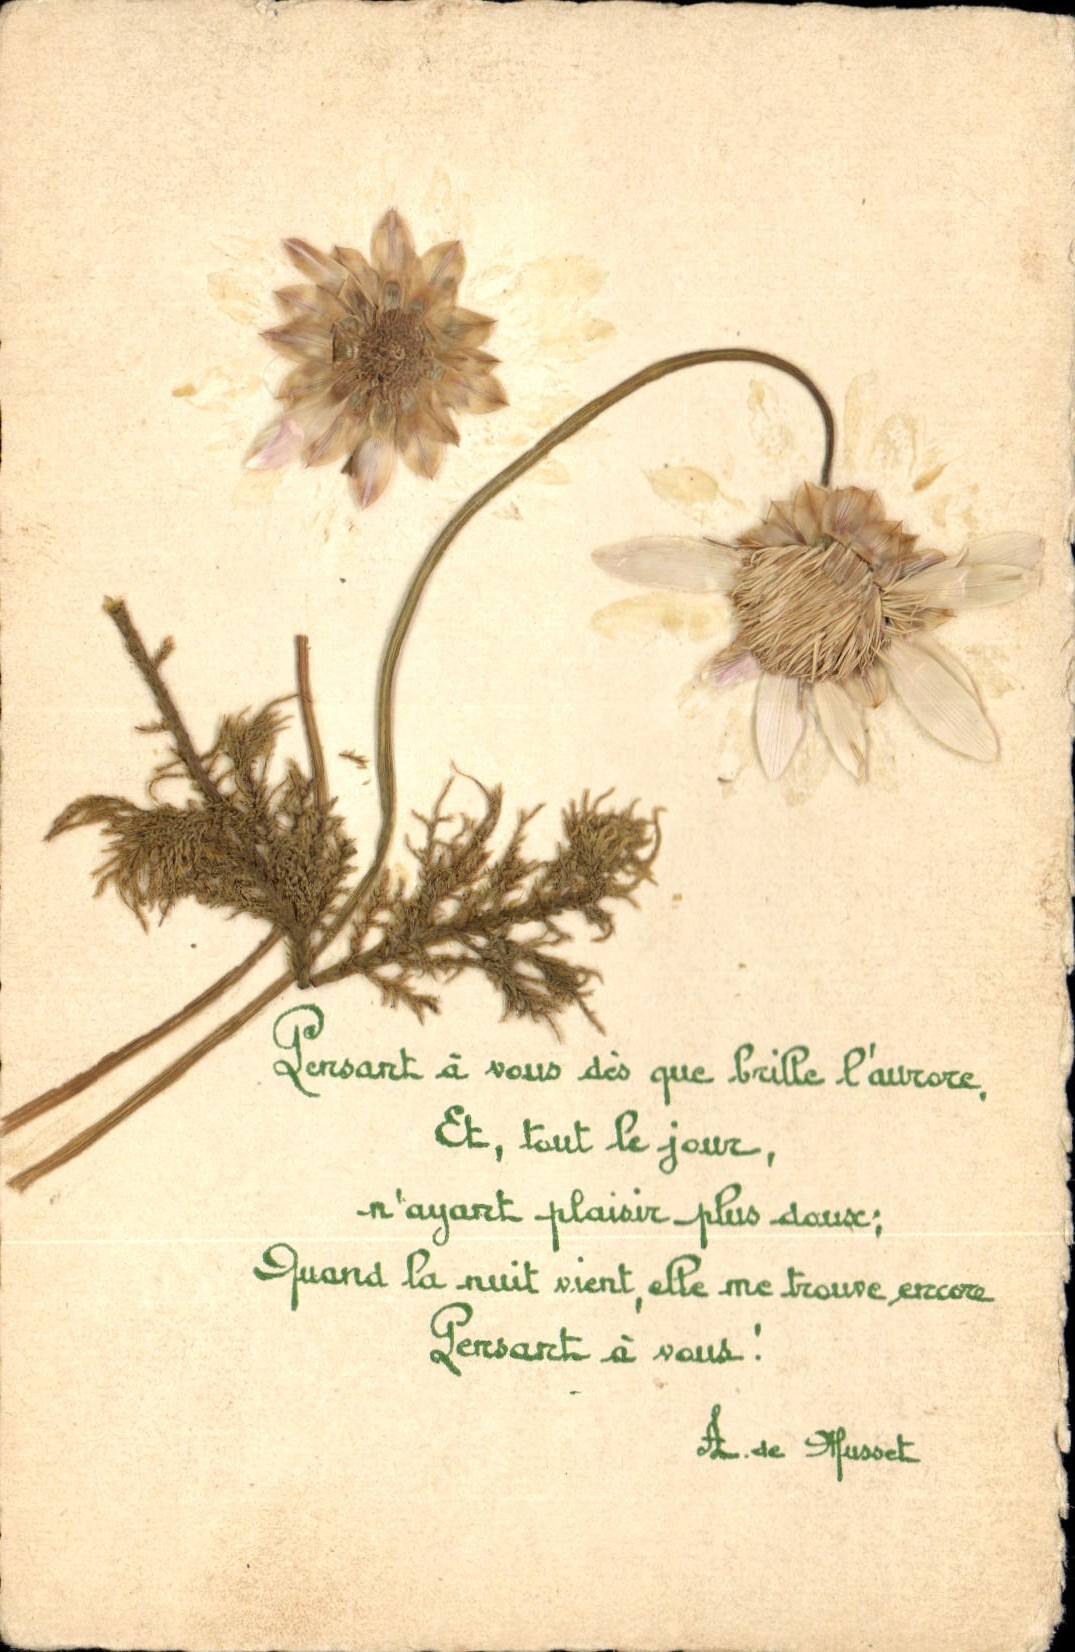 Pensant à vous dès que brille l'aurore,
Et, tout le jour,
n'ayant plaisir plus doux;
Quand la nuit vient, elle me trouve encore
Pensant à vous!
A. de Musset